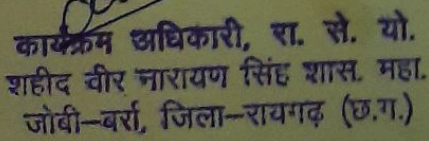 कार्यक्रम अधिकारी, रा. से. यो.
शहीद वीर नारायण सिंह शास. महा.
जोबी–बर्रा, जिला–रायगढ़ (छ.ग.)